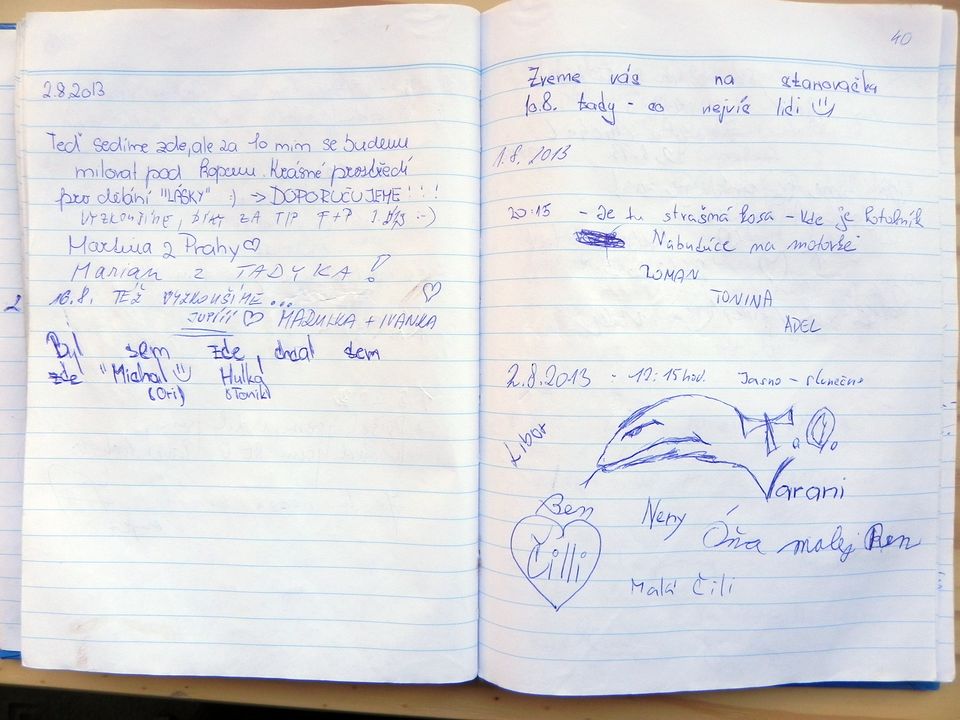 2.8.2013
Teď sedíme zde, ale za 10 min se budeme
milovat pod kopcem. Krásné prostředí
pro dělání "LÁSKY" :) → DOPORUČUJEME!!!
VYZKOUŠÍME, DÍKY ZA TIP :-)
Martina z Prahy ♡
Marian z TADYKA!
16.8. TÉŽ VYZKOUŠÍME...
JUPÍÍÍ ♡ MADULKA + IVANKA
Byl sem zde, chcal sem
zde "Michal Hulka
(Ori) (Toník)
40
Zveme vás na stanovačku
10.8. tady - co nejvíc lidí
1.8.2013
20:15 - Je tu strašná kosa - kde je kotelník
Nabudúce na motorke
ROMAN
TONINA
ADEL
2.8.2013 - 12:15 hod. Jasno - slunečno
Libor
T.O.
Varani
Ben
Čilli
Neny
Óňa malej Ben
Malá Čili